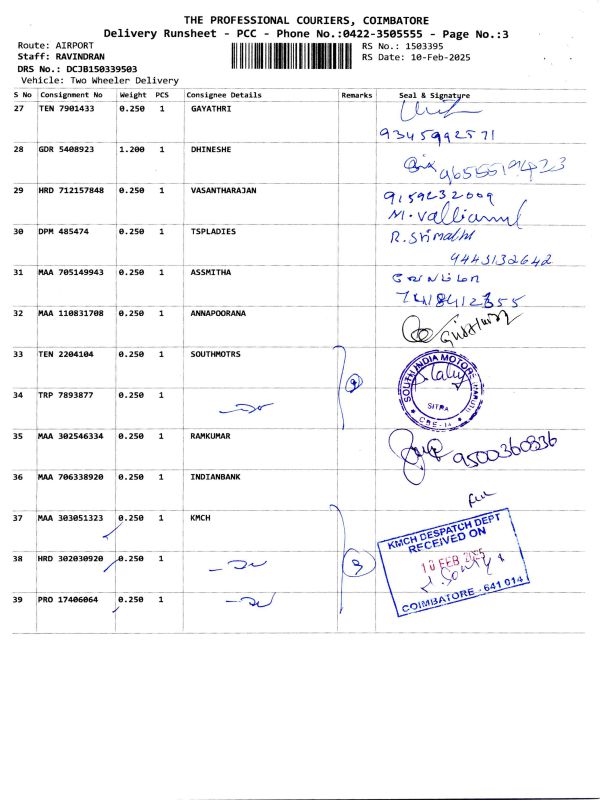 THE PROFESSIONAL COURIERS, COIMBATORE
Delivery Runsheet - PCC - Phone No.:0422-3505555 - Page No.:3
Route: AIRPORT RS No.: 1503395
Staff: RAVINDRAN RS Date: 10-Feb-2025
DRS No.: DCJB150339503
Vehicle: Two Wheeler Delivery
S No Consignment No Weight PCS Consignee Details Remarks Seal & Signature
27 TEN 7901433 0.250 1 GAYATHRI
9345992571
28 GDR 5408923 1.200 1 DHINESHE
29 HRD 712157848 0.250 1 VASANTHARAJAN 9159232009
M. Valliammal
30 DPM 485474 0.250 1 TSPLADIES R. Srimathi
9443132642
31 MAA 705149943 0.250 1 ASSMITHA
7418412355
32 MAA 110831708 0.250 1 ANNAPOORANA
33 TEN 2204104 0.250 1 SOUTHMOTRS
SOUTH INDIA MOTORS
SITRA
CBE-14
34 TRP 7893877 0.250 1
35 MAA 302546334 0.250 1 RAMKUMAR 9500360836
36 MAA 706338920 0.250 1 INDIANBANK
37 MAA 303051323 0.250 1 KMCH
KMCH DESPATCH DEPT
RECEIVED ON
10 FEB
COIMBATORE - 641 014
38 HRD 302030920 0.250 1 3
39 PRO 17406064 0.250 1